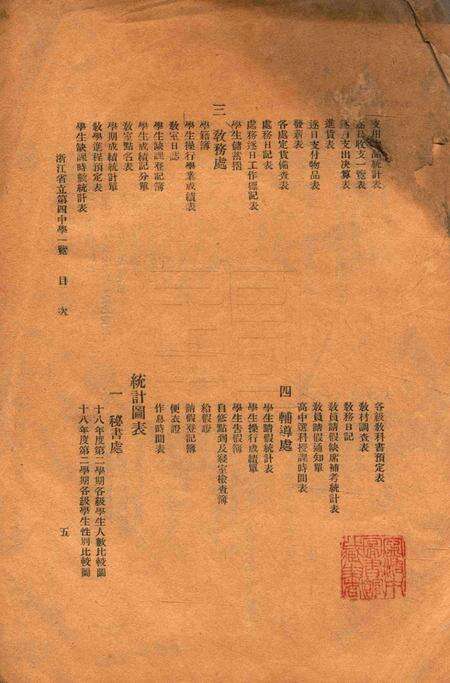 支用物品統計表
逐日收支一覽表
逐月支出決算表
進貨表
逐日支付物品表
發薪表
各處定貨備查表
庶務日記表
庶務逐日工作標記表
學生儲蓄摺
三 教務處
學籍簿
學生操行學業成績表
教室日誌
學生缺課登記簿
學生成績記分單
教室點名表
學期成績統計單
教學進程預定表
學生缺課時數統計表
各級教科書預定表
教材調查表
教務日記
教員請假缺席補考統計表
教員請假通知單
高中選科授課時間表
四 輔導處
學生請假統計表
學生操行成績單
學生告假簿
自修點到及寢室檢查簿
給假證
請假登記簿
便衣證
作息時間表
統計圖表
一 秘書處
十八年度第二學期各級學生人數比較圖
十八年度第二學期各級學生性別比較圖
浙江省立第四中學一覽 目次
五